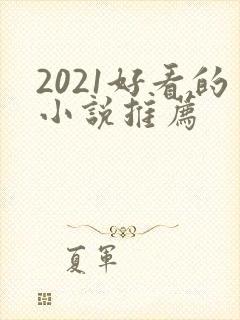 2021好看的
小说推薦
夏軍